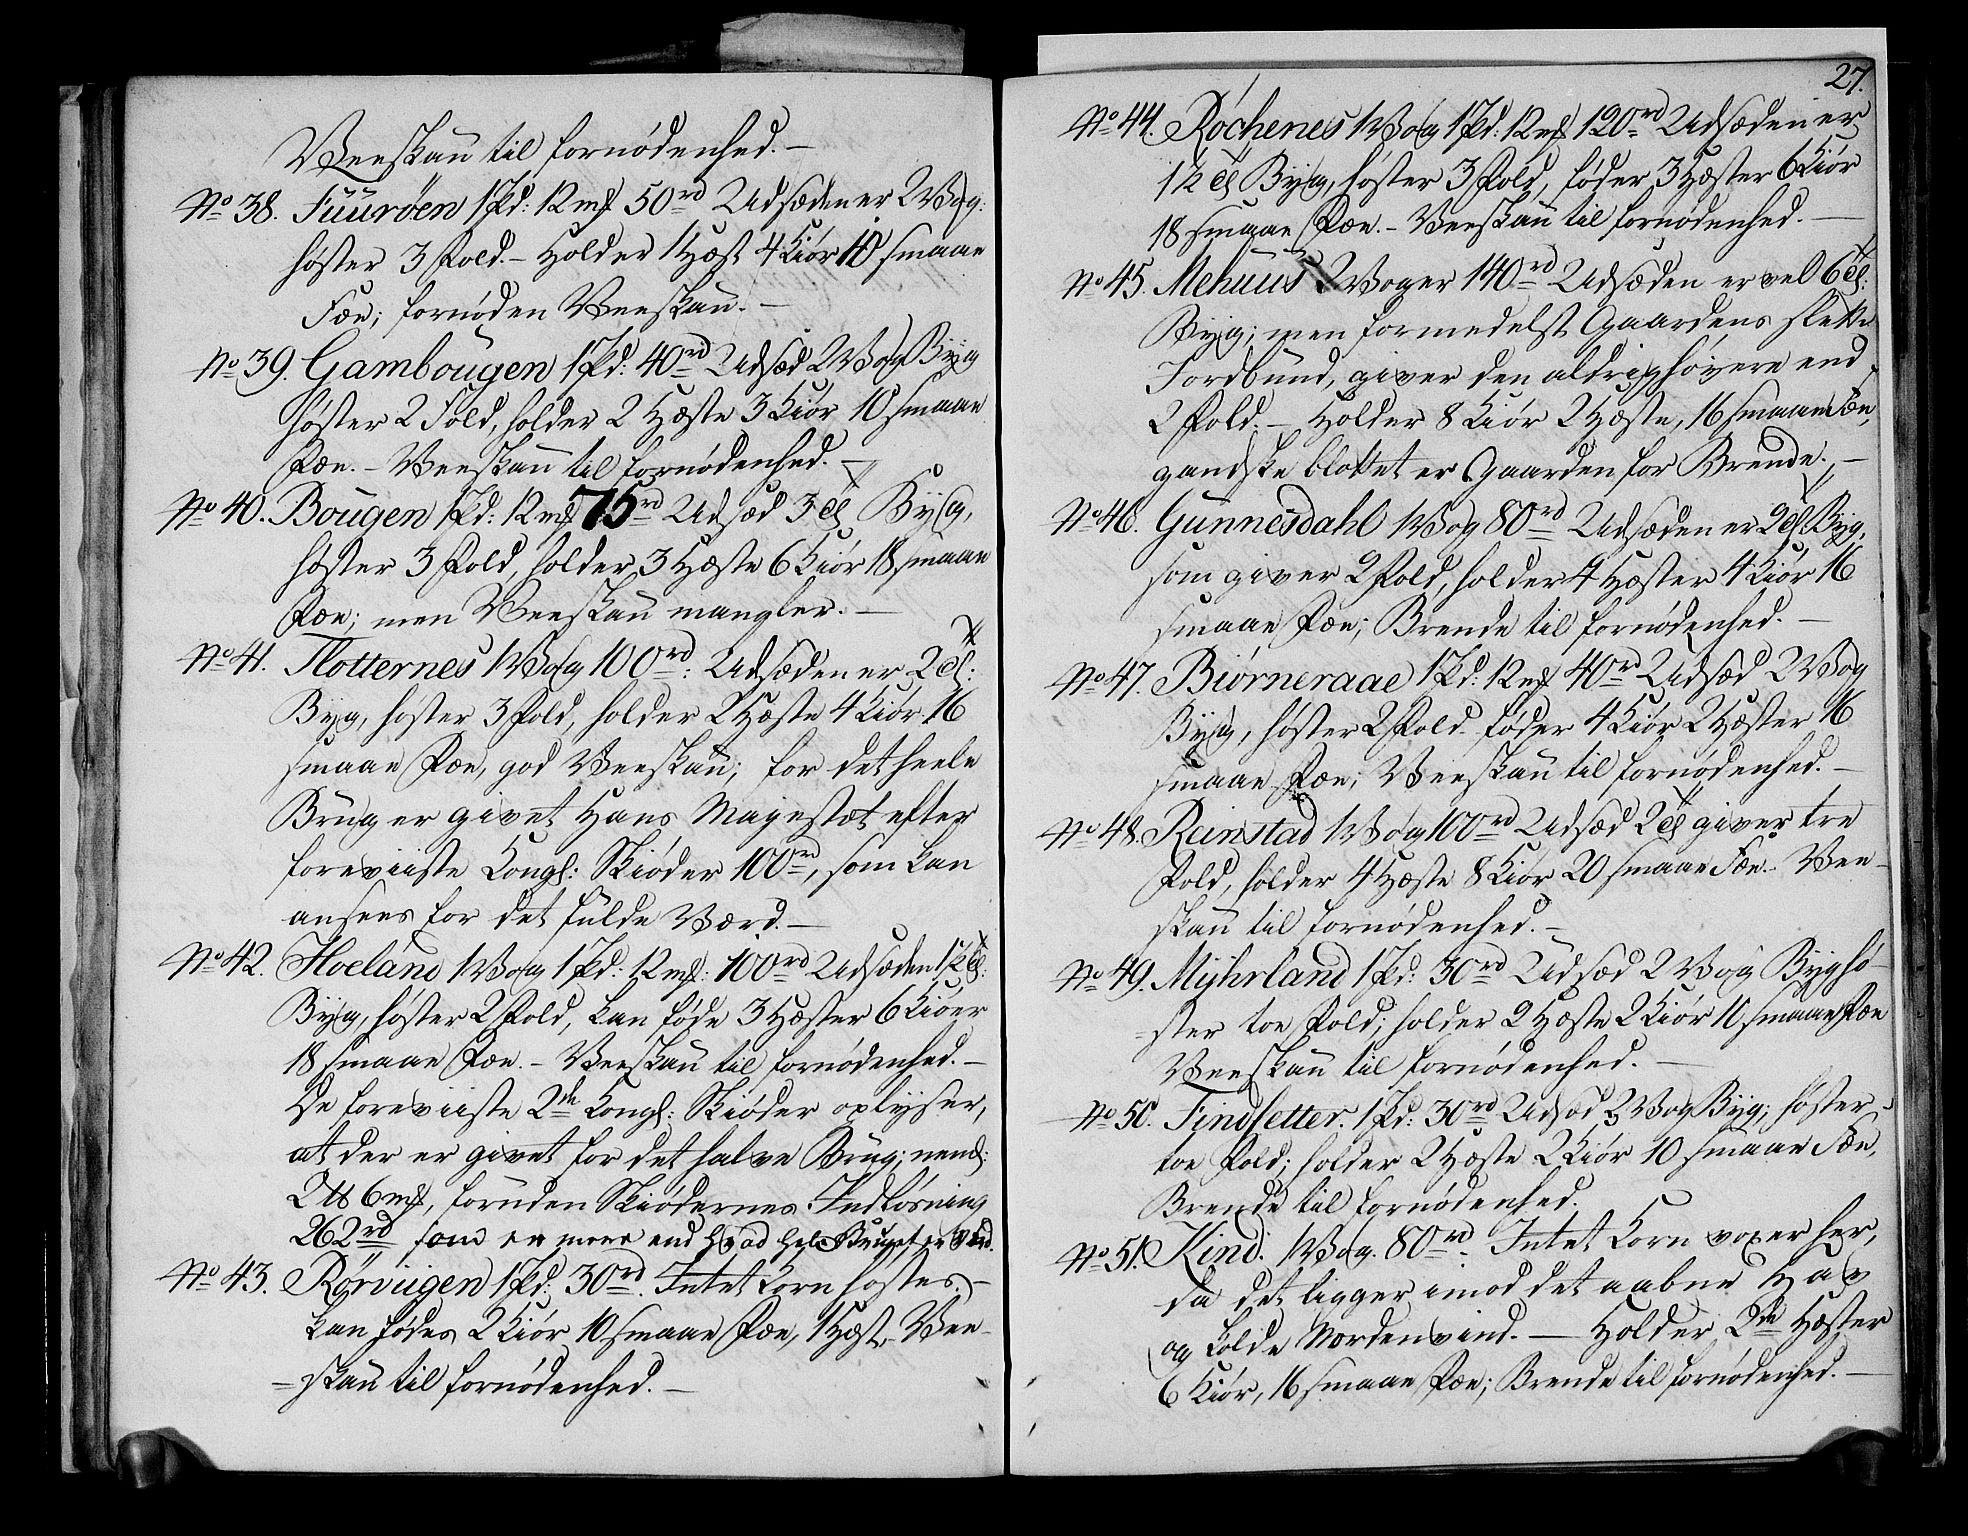 Veeskau til fornødenhed. –
No 38. Fuurøen 1 Pd: 12 mk 50 rd Udsæden er 2 Vog:
høster 3 Fold. – Holder 1 Hæst 4 Kiør 10 smaae
Fæe; fornøden Veeskau. –
No 39. Gambougen 1 Pd: 40 rd Udsæd 2 Vog Byg
høster 2 Fold, holder 2 Hæste 3 Kiør 10 smaae
Fæe. – Veeskau til fornødenhed. –
No 40. Bougen 1 Pd: 12 mk 75 rd Udsæd 3 Tl Byg,
høster 3 Fold, holder 3 Hæste 6 Kiør 18 smaae
Fæe; men Veeskau mangler. –
No 41. Flotternes 1 Vog 100 rd: Udsæden er 2 Tl:
Byg, høster 3 Fold, holder 2 Hæste 4 Kiør 16
smaae Fæe, god Veeskau; for det heele
Brug er givet Hans Majestæt efter
foreviiste Kongl: Skiøder 100 rd, som kan
ansees for det fulde Værd. –
No 42. Hoeland 1 Vog 1 Pd: 12 mk: 100 rd Udsæden 1½ Tl:
Byg, høster 2 Fold, kan føde 3 Hæster 6 Kiøer
18 smaae Fæe. – Veeskau til fornødenhed. –
De foreviiste 2de Kongl: Skiøder oplyser,
at der er givet for det halve Brug; neml:
2 Pd 6 mk, foruden Skiødernes Indløsning
262 rd som er mere end hvad hele Bruget er værd.
No 43. Rørviigen 1 Pd: 30 rd. Intet Korn høstes. –
kan fødes 2 Kiør 10 smaae Fæe, 1 Hæst, Vee-
=skau til fornødenhed. –
27.
No 44. Rochenes 1 Vog 1 Pd: 12 mk 120 rd Udsæden er
1½ Tl Byg, høster 3 Fold, føder 3 Hæster 6 Kiør
18 smaae Fæe. – Veeskau til fornødenhed. –
No 45. Mehuus 2 Voger 140 rd Udsæden er vel 6 Tl:
Byg; men formedelst Gaardens slette
Jordbund, giver den aldrig høyere end
2 Fold. – Holder 8 Kiør 2 Hæste, 16 smaae Fæe,
gandske blottet er Gaarden for Brende. –
No 46. Gunnesdahl 1 Vog 80 rd Udsæden er 2 Tl: Byg,
som giver 2 Fold, holder 4 Hæster 4 Kiør 16
smaae Fæe; Brende til fornødenhed. –
No 47. Biørneraae 1 Pd: 12 mk 40 rd Udsæd 2 Vog
Byg, høster 2 Fold føder 4 Kiør 2 Hæster 16
smaae Fæe; Veeskau til fornødenhed. –
No 48. Reinstad 1 Vog 100 rd Udsæd 2 Tl giver tre
Fold, holder 4 Hæste 8 Kiør 20 smaae Fæe. Vee-
skau til fornødenhed. –
No 49. Myhrland 1 Pd: 30 rd Udsæd 2 Vog Byg hø-
=ster toe Fold; holder 2 Hæste 2 Kiør 10 smaae Fæe
Veeskau til fornødenhed. –
No 50. Findsetter. 1 Pd: 30 rd Udsæd 2 Vog Byg; høster
toe Fold; holder 2 Hæste 2 Kiør 10 smaae Fæe,
Brende til fornødenhed.
No 51. Kind. 1 Vog. 80 rd. Intet Korn voxer her,
da det ligger imod det aabne Hav
og kolde Nordenvind. – Holder 2de Hæster
6 Kiør, 16 smaae Fæe; Brende til fornødenhed. –